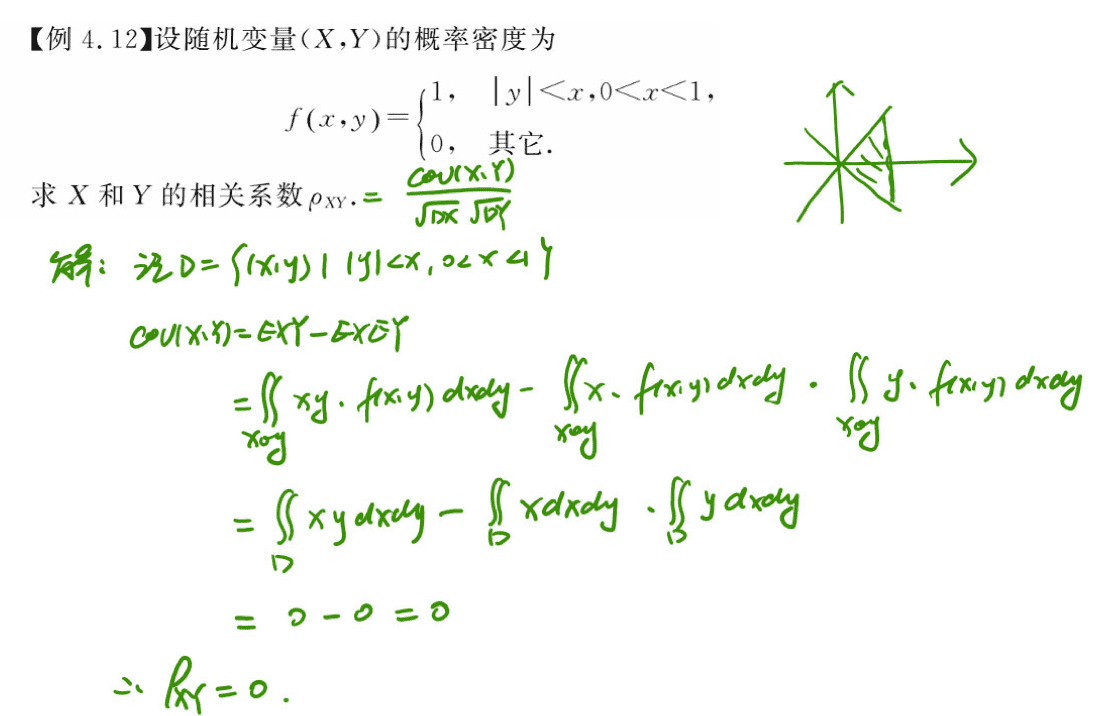 【例 4.12】设随机变量(X,Y)的概率密度为
f(x,y)={1, |y|<x,0<x<1,
0, 其它.
求 X 和 Y 的相关系数ρXY.= cov(X,Y)/√DX √DY
解: 记 D={(x,y)| |y|<x,0<x<1}
cov(X,Y)=EXY-EXEY
=∬xoy xy·f(x,y)dxdy-∬xoy x·f(x,y)dxdy·∬xoy y·f(x,y)dxdy
=∬D xydxdy-∬D xdxdy·∬D ydxdy
= 0-0=0
∴ρXY=0.